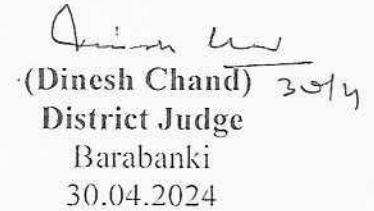 (Dinesh Chand) 30/4
District Judge
Barabanki
30.04.2024